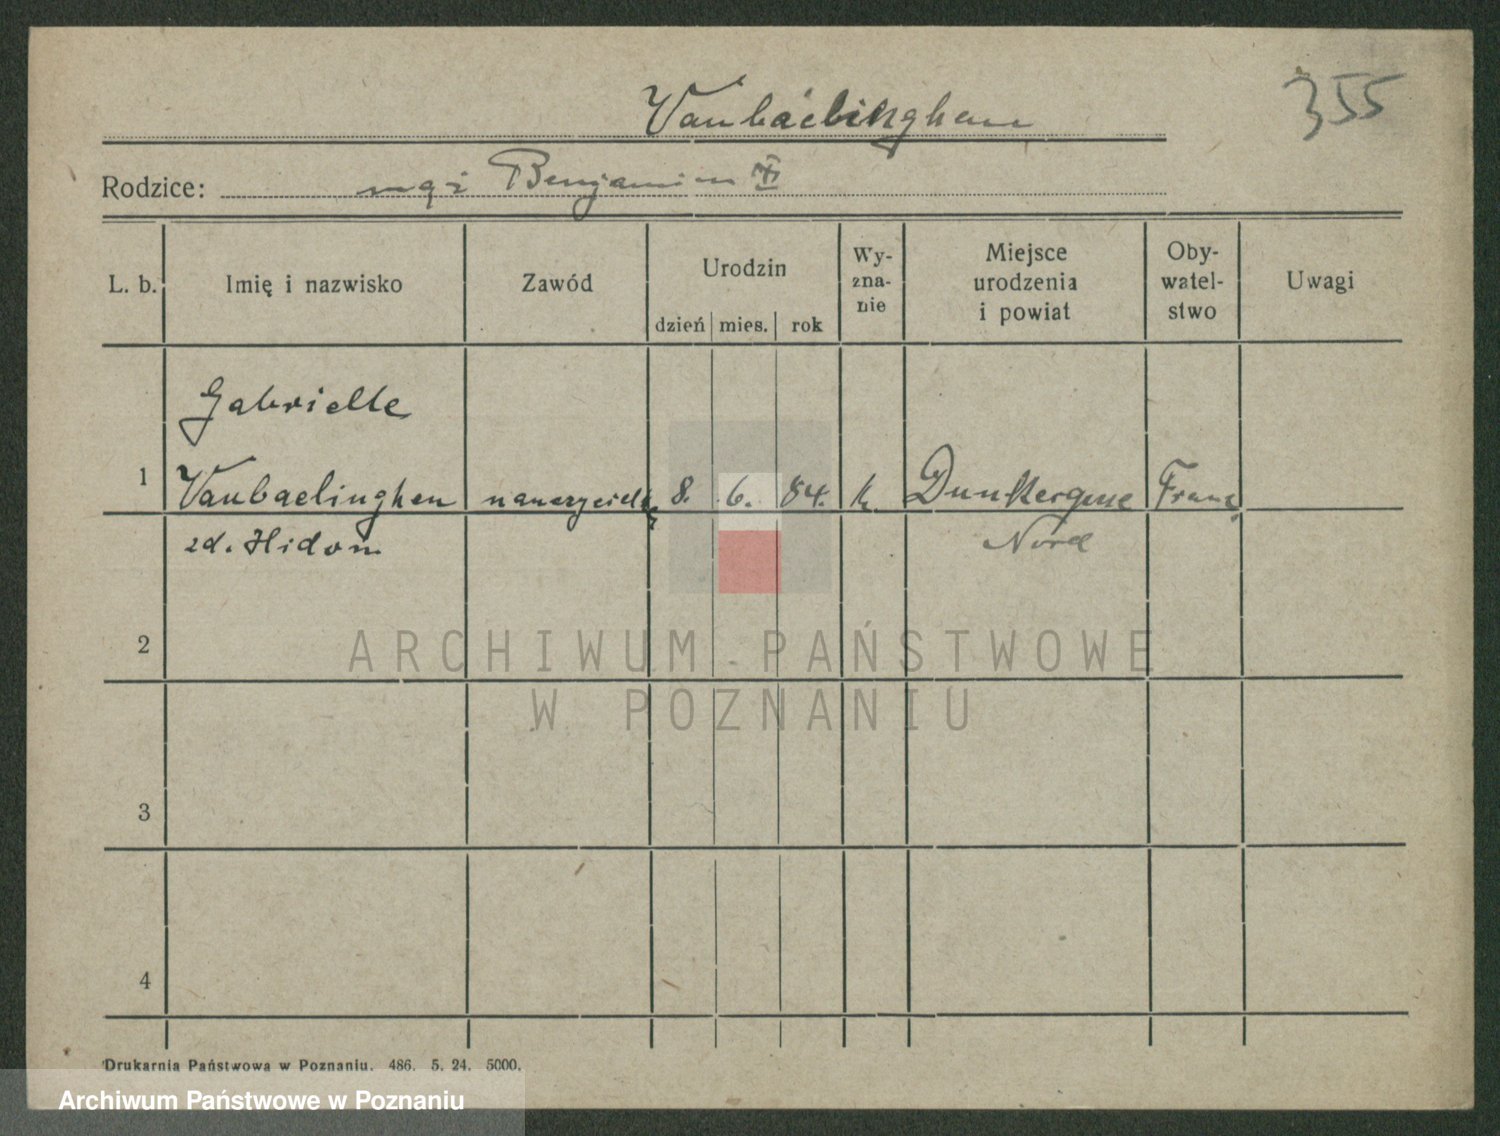 355
Vanbaelinghem
Rodzice: mąż Benjamin
L. b. Imię i nazwisko Zawód Urodzin dzień mies. rok Wy-zna-nie Miejsce urodzenia i powiat Oby-watel-stwo Uwagi
Gabrielle
1 Vanbaelinghen nauczycielk 8. 6. 84. k. Dunkerque Franc
zd. Hidom Nord
2
3
4
ARCHIWUM PAŃSTWOWE
W POZNANIU
Drukarnia Państwowa w Poznaniu. 486. 5. 24. 5000.
Archiwum Państwowe w Poznaniu